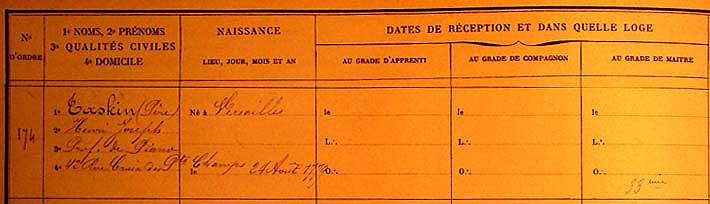 No
D'ORDRE
1o NOMS, 2o PRÉNOMS
3o QUALITÉS CIVILES
4o DOMICILE
NAISSANCE
LIEU, JOUR, MOIS ET AN
DATES DE RÉCEPTION ET DANS QUELLE LOGE
AU GRADE D'APPRENTI
AU GRADE DE COMPAGNON
AU GRADE DE MAITRE
174
1o Taskin (Père)
2o Henri Joseph
3o Prof. de Piano
4o 42 Rue Croix des Pts Champs
Né à Versailles
le 24 Août 1779
le
L∴
O∴
le
L∴
O∴
le
L∴
O∴
33ème